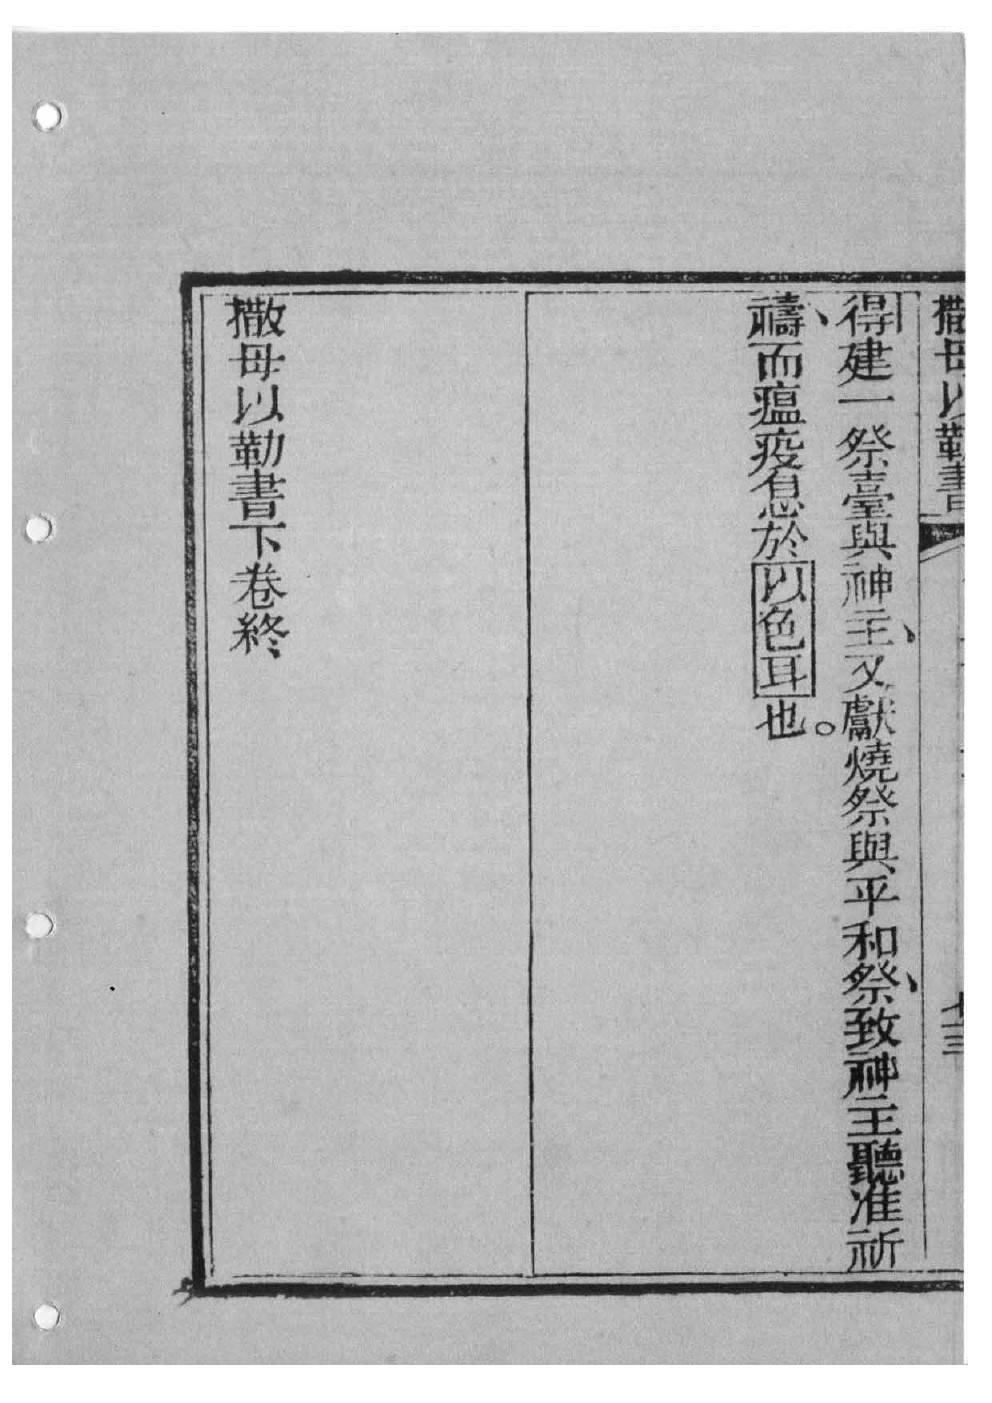 撒母以勒書 七三
得建一祭臺與神主、又獻燒祭與平和祭、致神主聽准祈
禱、而瘟疫息於以色耳也。
撒母以勒書下卷終